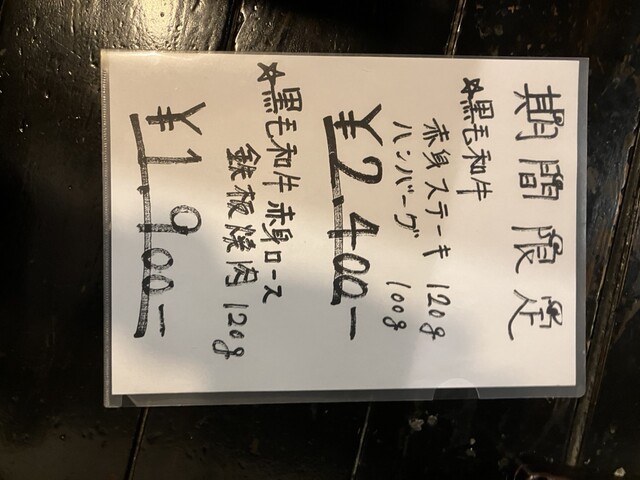 期間限定
☆黒毛和牛
赤身ステーキ 120g
ハンバーグ 100g
¥2,400−
☆黒毛和牛赤身ロース
鉄板焼肉 120g
¥1,900−